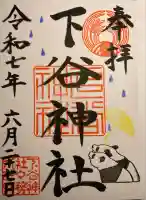 奉拝
下谷神社
令和七年
六月二十七日